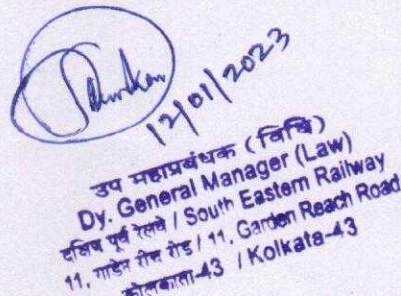 12/01/2023
उप महाप्रबंधक (विधि)
Dy. General Manager (Law)
दक्षिण पूर्व रेलवे / South Eastern Railway
11, गार्डेन रीच रोड / 11, Garden Reach Road
कोलकाता-43 / Kolkata-43